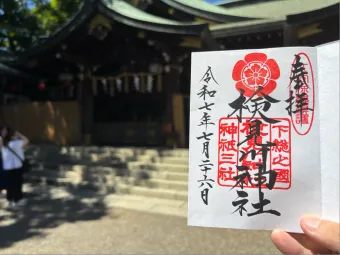 奉拝
検見川神社
下総之國
神祇三社
令和七年七月二十六日